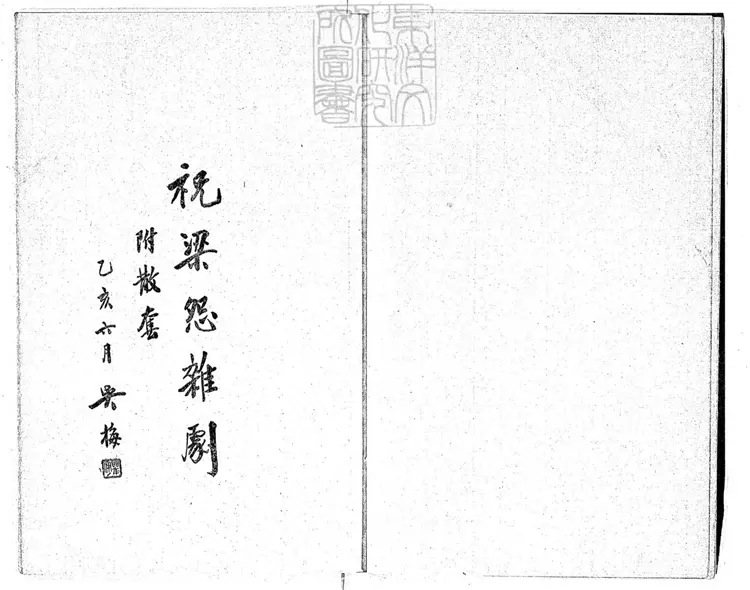 祝梁怨雜劇
附散套
乙亥六月 吳梅
東洋文
化研究
所圖書